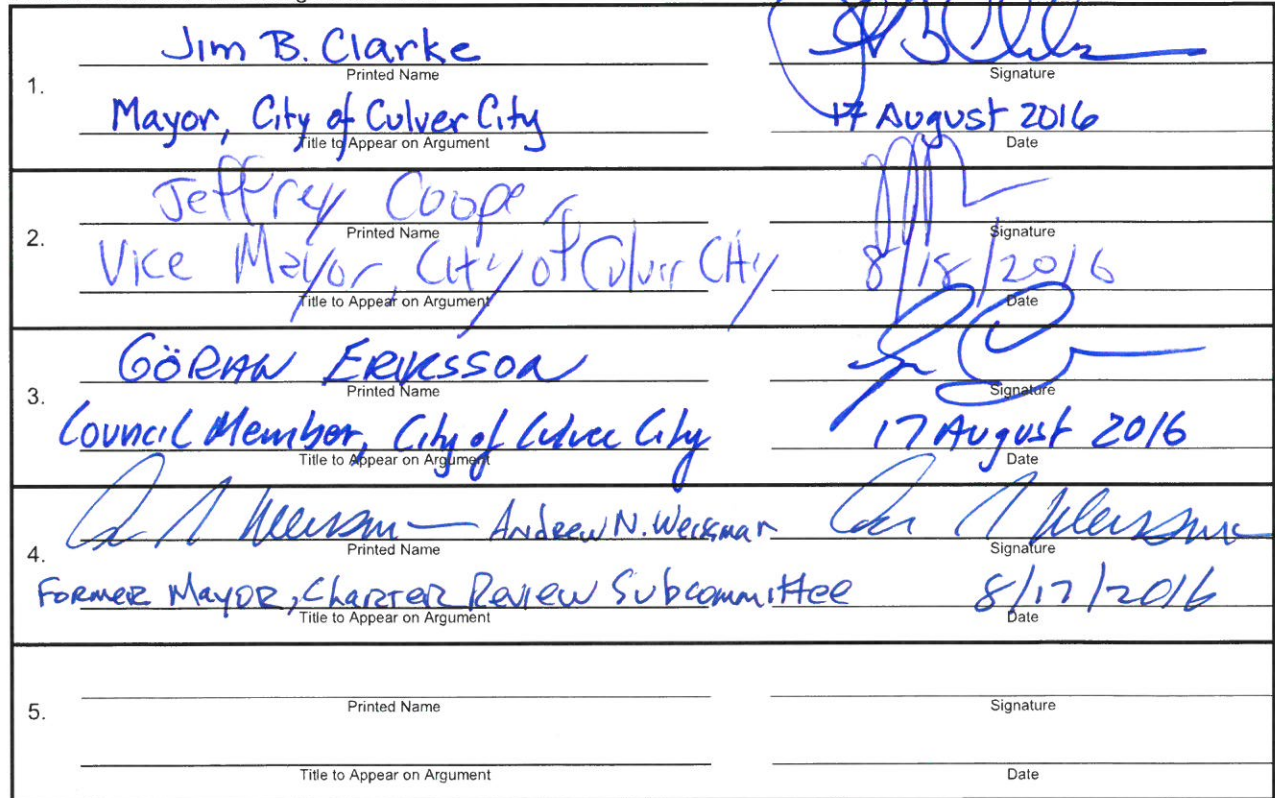 Jim B. Clarke
Printed Name Signature
1.
Mayor, City of Culver City 17 August 2016
Title to Appear on Argument Date
Jeffrey Cooper
Printed Name Signature
2.
Vice Mayor, City of Culver City 8/18/2016
Title to Appear on Argument Date
GÖRAN ERIKSSON
Printed Name Signature
3.
Council Member, City of Culver City 17 August 2016
Title to Appear on Argument Date
Andrew N. Weissman
Printed Name Signature
4.
Former Mayor, Charter Review Subcommittee 8/17/2016
Title to Appear on Argument Date
Printed Name Signature
5.
Title to Appear on Argument Date